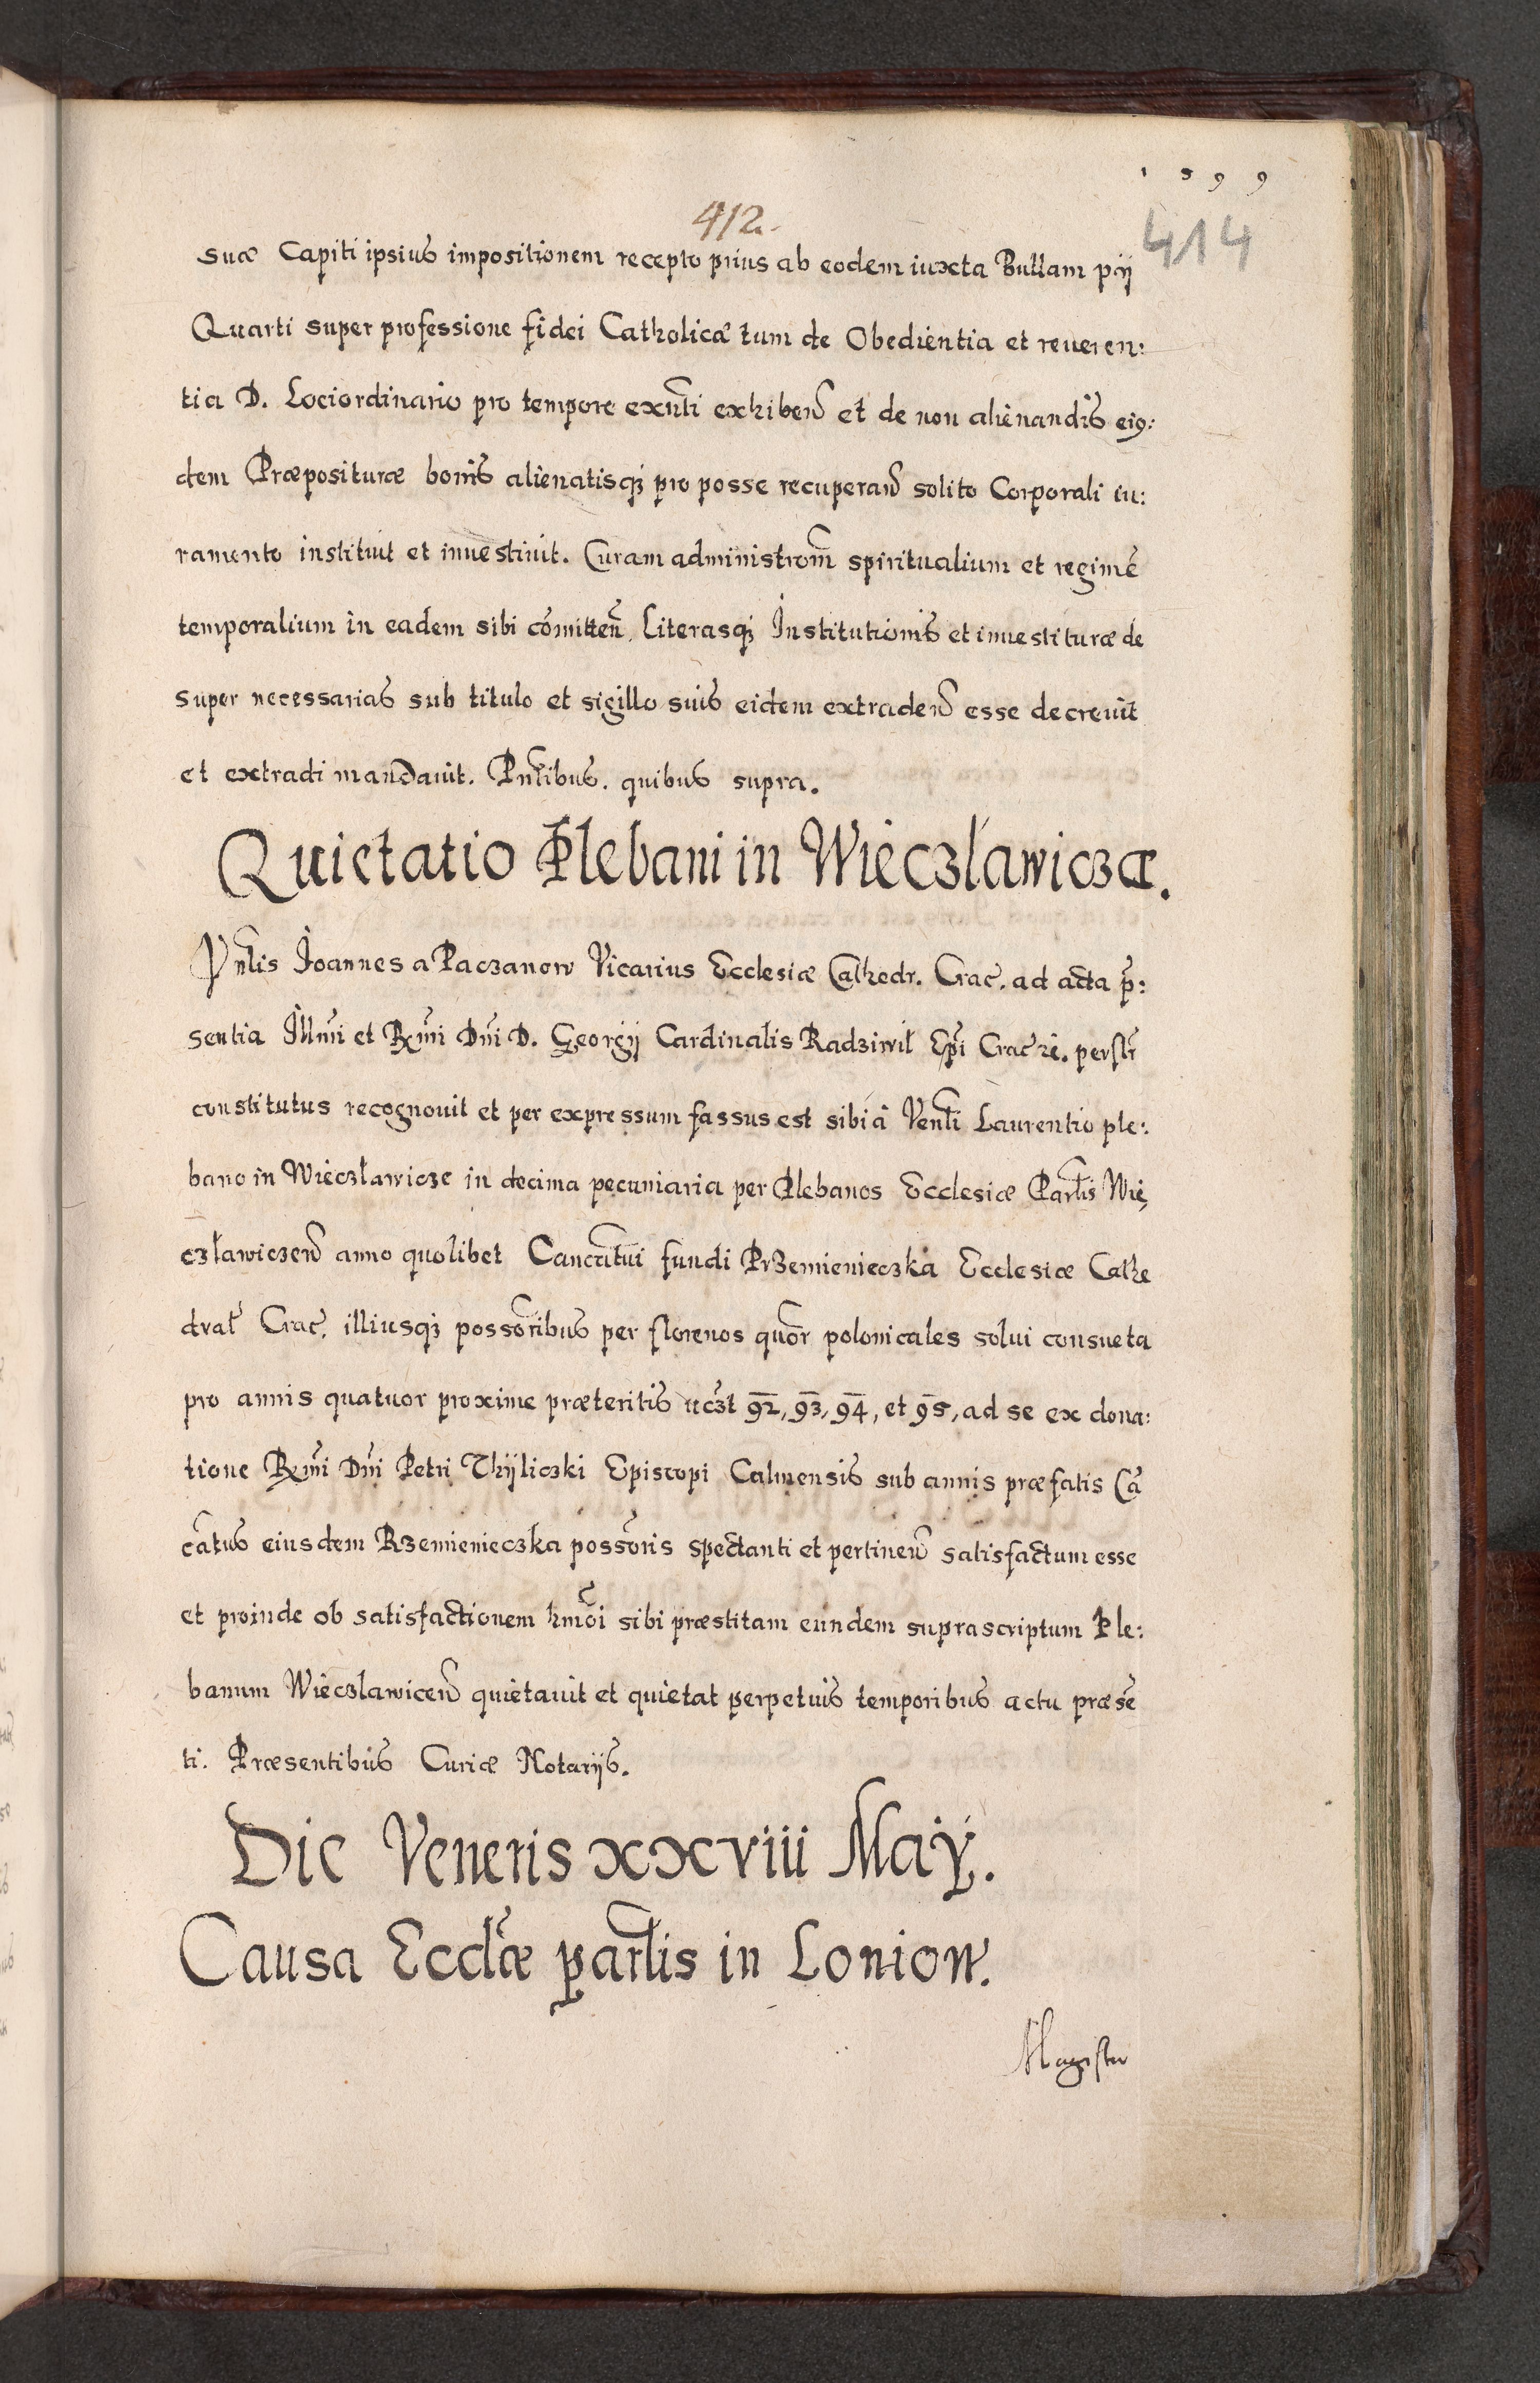 1599
412.
414
suæ Capiti ipsius impositionem recepto prius ab eodem iuxta Bullam pij
Quarti super professione fidei Catholicæ tum de Obedientia et reueren:
tia D. Lociordinario pro tempore exñti exhibeñ et de non alienandis eiꝰ:
dem Præposituræ bonis alienatisqꝫ pro posse recuperañ solito Corporali iu:
ramento instituit et inuestiuit. Curam administrom̃ spiritualium et regimẽ
temporalium in eadem sibi com̃itteñ. Literasqꝫ Institutionis et inuestituræ de
super necessarias sub titulo et sigillo suis eidem extradeñ esse decreuit
et extradi mandauit. Pñtibus. quibus supra.
Quietatio Plebani in Wieczlawiczæ.
Vñlis Joannes a Paczanow Vicarius Ecclesiæ Cathedr. Crac̃. ad acta p̃:
sentia Illm̃i et Rm̃i Dñi D. Georgij Cardinalis Radziwił Ep̃i Crac̃ zc̃. persr̃
constitutus recognouit et per expressum fassus est sibi á Venl̃i Laurentio ple:
bano in Wieczławicze in decima pecuniaria per Plebanos Ecclesiæ Parl̃is Wie
czławiczeñ anno quolibet Canc̃atui fundi Przemienieczka Ecclesiæ Cathe
dral̃ Crac̃. illiusqꝫ possor̃ibus per florenos quõr polonicales solui consueta
pro annis quatuor proxime præteritis uczt̃ 92, 93, 94, et 95, ad se ex dona:
tione Rm̃i Dñi Petri Thijliczki Episcopi Culmensis sub annis præfatis Cã
c̃atus eiusdem Rzemienieczka possor̃is spectanti et pertineñ satisfactum esse
et proinde ob satisfactionem hmõi sibi præstitam eundem suprascriptum Ple:
banum Wieczlawiceñ quietauit et quietat perpetuis temporibus actu præsẽ
ti. Præsentibus Curiæ Notarijs.
Die Veneris xxviii Maÿ.
Causa Eccl̃æ parl̃is in Loniow.
Magister